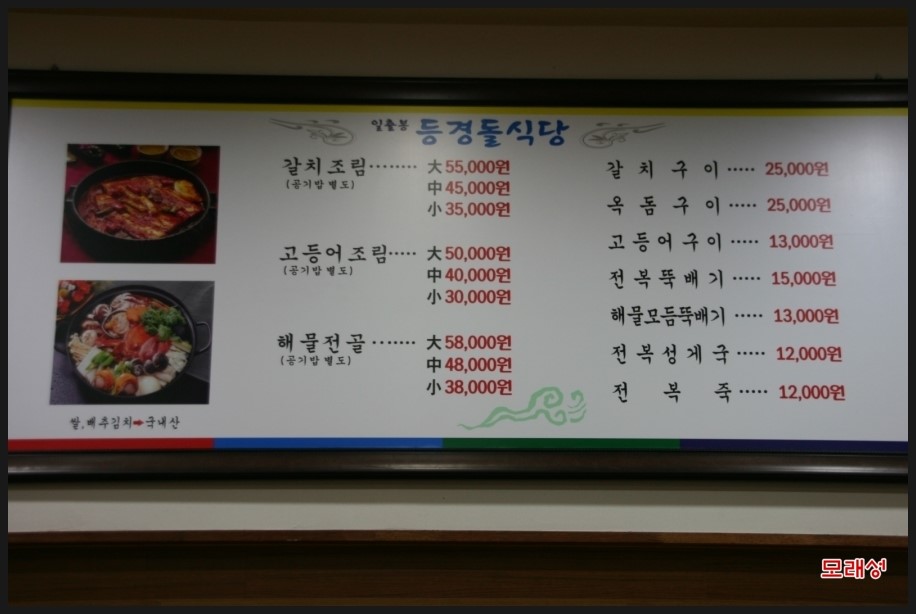 일출봉 등경돌식당
갈치조림········ 大 55,000원
(공기밥 별도) 中 45,000원
小 35,000원
고등어조림····· 大 50,000원
(공기밥 별도) 中 40,000원
小 30,000원
해물전골 ······· 大 58,000원
(공기밥 별도) 中 48,000원
小 38,000원
갈치구이 ····· 25,000원
옥돔구이 ····· 25,000원
고등어구이 ····· 13,000원
전복뚝배기 ····· 15,000원
해물모듬뚝배기 ····· 13,000원
전복성게국 ····· 12,000원
전복죽 ····· 12,000원
쌀,배추김치➡국내산
모래성